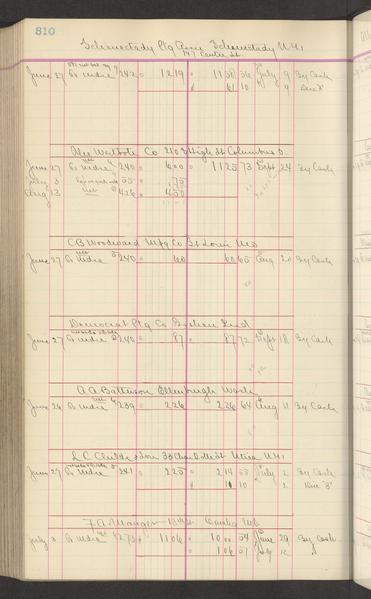 810
Schenectady Ptg Assn Schenectady N.Y.
147 Centre St.
June 27 To Mdse 242 1219 1150 56 July 9 By Cash
61 10 9 Disct
Co 210 S High St Columbus O.
June 27 To Mdse 240 600 1125 73 Sept 24 By Cash
July 3 55 75
Aug 13 426 450
C B Woodward Mfg Co St Louis Mo
June 27 To Mdse 240 60 60 65 Aug 20 By Cash
Democrat Ptg Co Goshen Ind
June 27 To Mdse 240 87 87 72 Sept 18 By Cash
A A Batterson Ellenburgh Wash
June 26 To Mdse 239 226 226 64 Aug 11 By Cash
L C Childs & Son 33 Charlotte St Utica N.Y.
June 27 To Mdse 241 225 214 July 2 By Cash
10 2 Disc
F. A. Manger Omaha Neb
July 3 To Mdse 273 1106 1000 54 June 29 By Cash
106 57 July